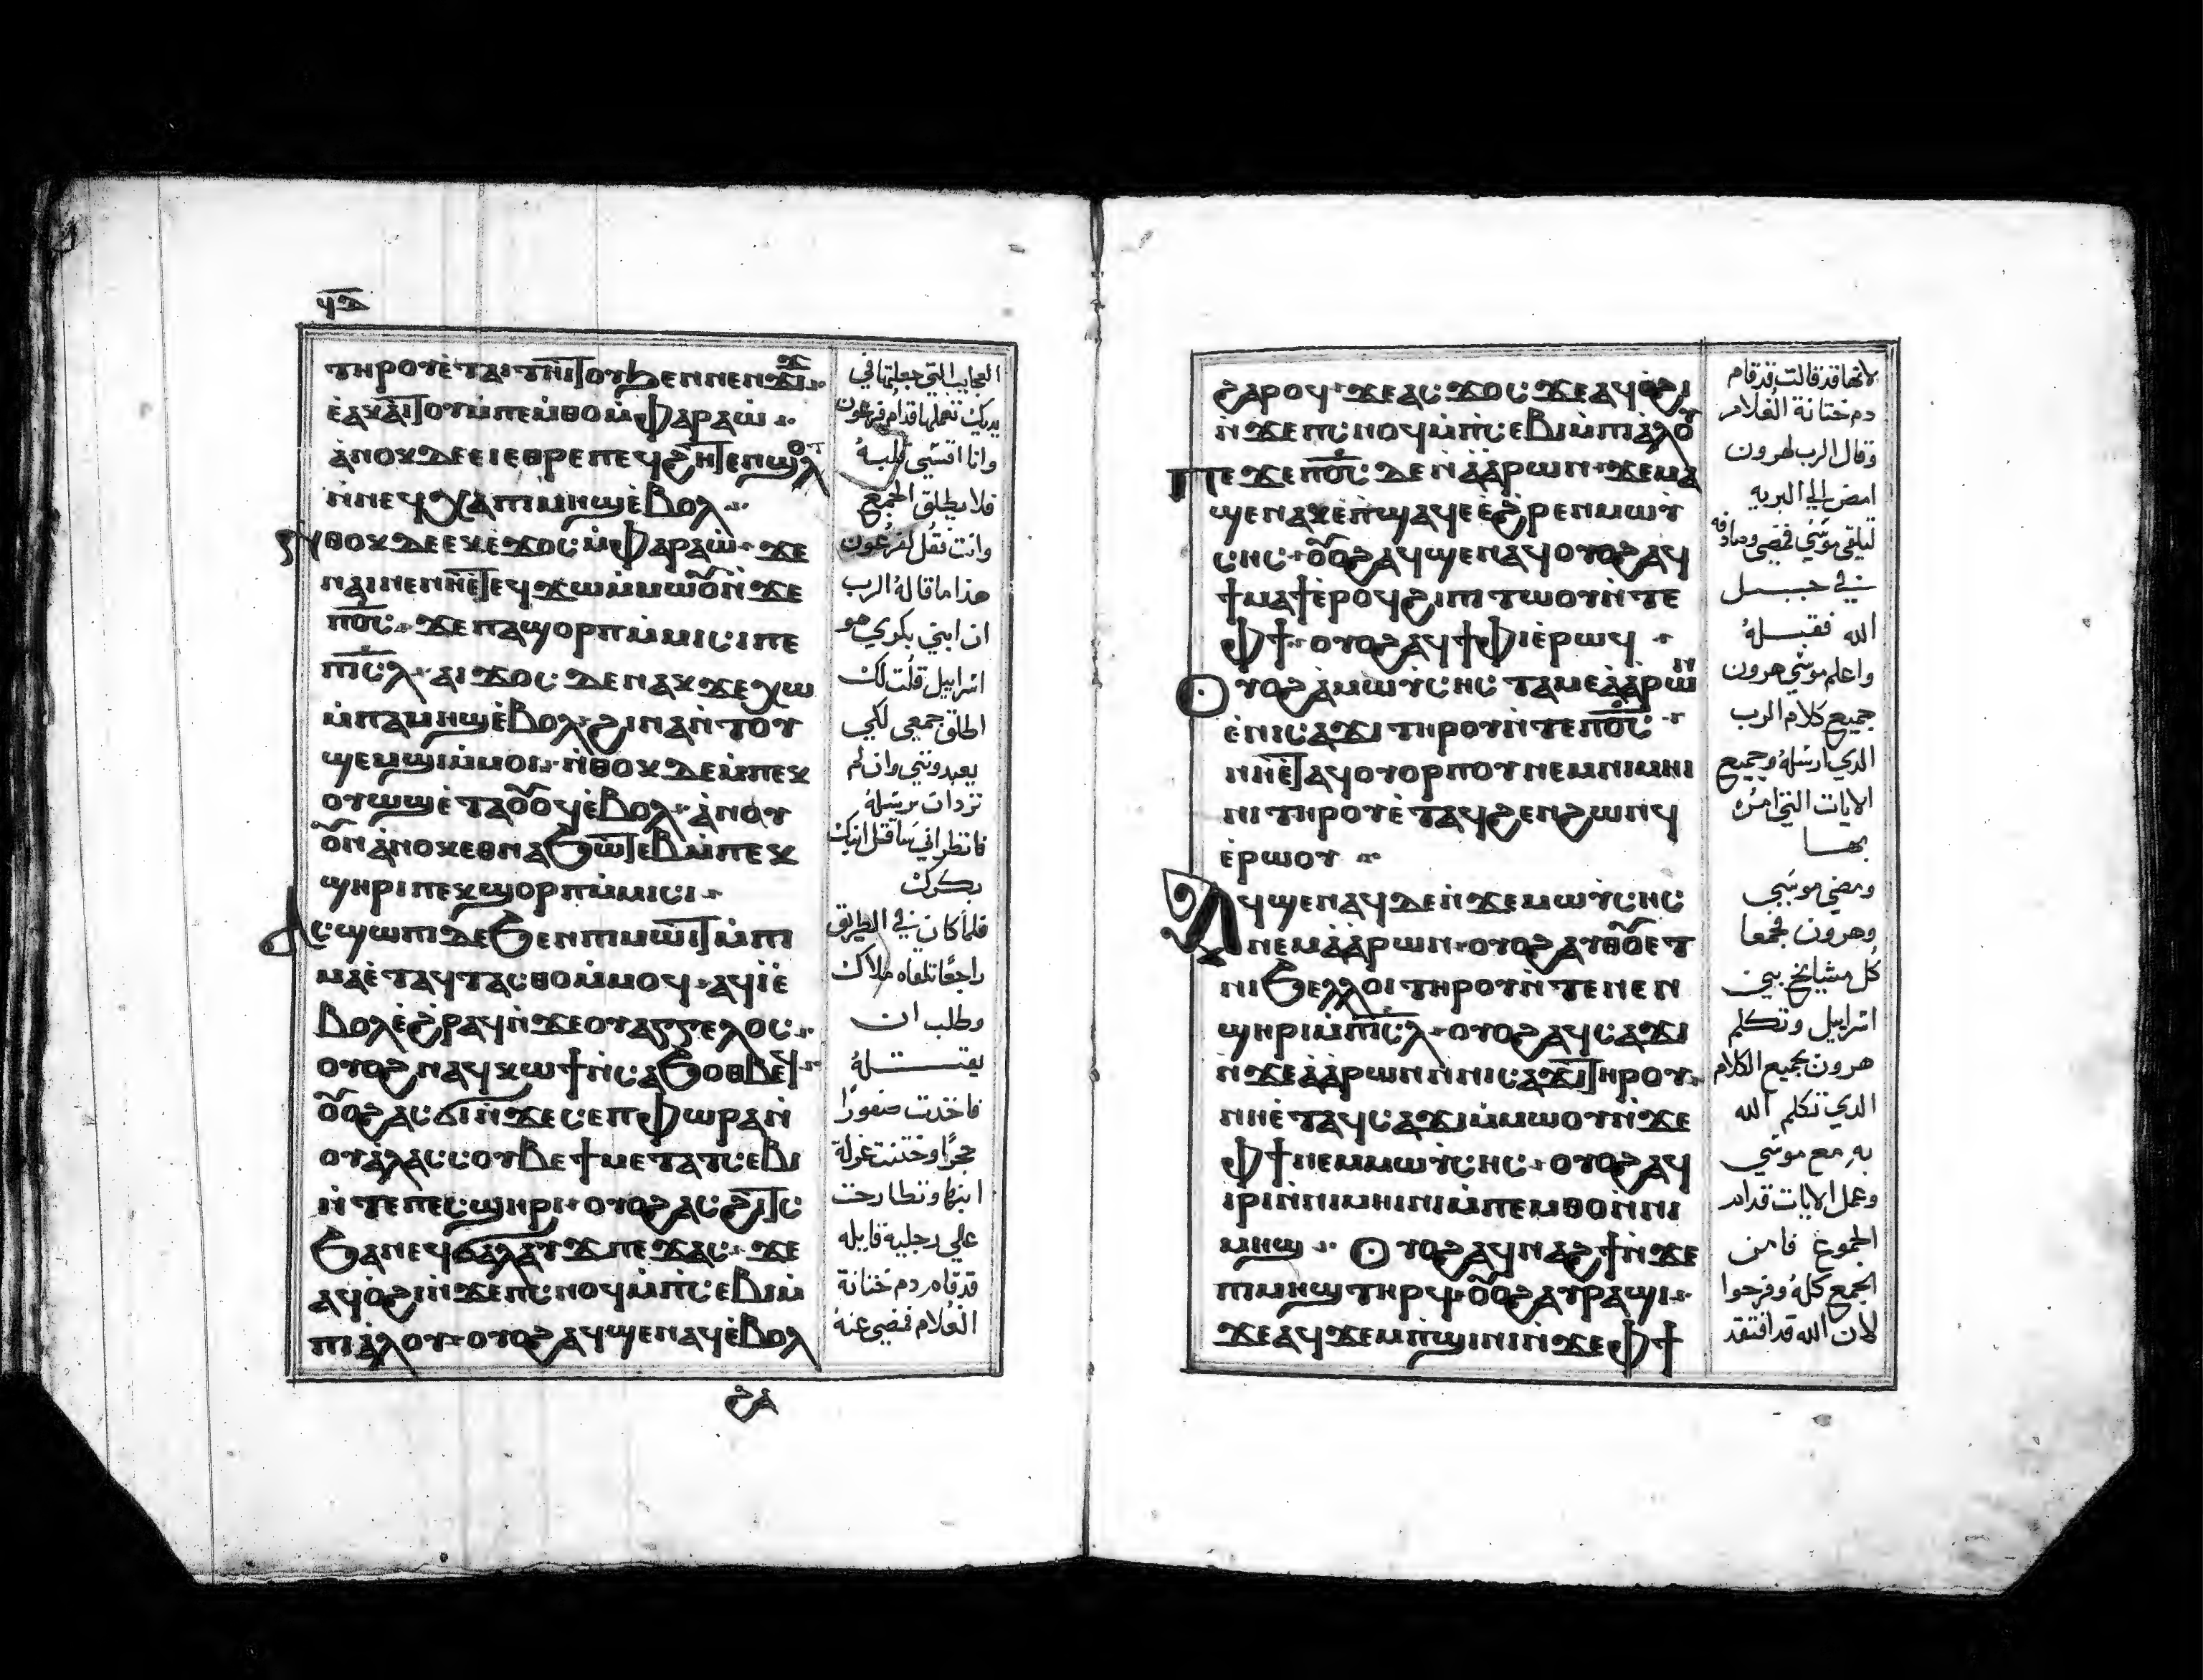 ϥⲇ
ⲧⲏⲣⲟⲩⲉ̀ⲧⲁⲓⲧⲏⲓⲧⲟⲩϧⲉⲛⲛⲉⲛϫⲓϫ
ⲉ̀ⲁⲭⲁⲓⲧⲟⲩⲙ̀ⲡⲉⲙ̀ⲑⲟⲙ̀ⲫⲁⲣⲁⲱ̀
ⲁ̀ⲛⲟⲕⲇⲉⲉⲓⲉⲑⲣⲉⲡⲉϥϩⲏⲧⲉⲛϣⲟⲧ
ⲛ̀ⲛⲉϥⲭⲁⲡⲓⲙⲏϣⲉ̀ⲃⲟⲗ
ⲛⲑⲟⲕⲇⲉⲉⲕⲉ̀ϫⲟⲥⲙ̀ⲫⲁⲣⲁⲱ̀ ϫⲉ
ⲛⲁⲓⲛⲉⲛⲏⲉⲧⲉϥϫⲱⲙ̀ⲙⲱⲟⲩⲛ̀ϫⲉ
ⲡⲟ̅ⲥ̅ ϫⲉⲡⲁϣⲟⲣⲡⲙ̀ⲙⲓⲥⲓⲡⲉ
ⲡⲓⲥ̅ⲗ ⲁⲓϫⲟⲥ ⲇⲉⲛⲁⲕϫⲉⲭⲱ
ⲙ̀ⲡⲁⲙⲏϣⲉ̀ⲃⲟⲗ ϩⲓⲛⲁⲛ̀ⲧⲟⲩ
ϣⲉⲙϣⲓⲙ̀ⲙⲟⲓ ⲛ̀ⲑⲟⲕⲇⲉⲙ̀ⲡⲉⲕ
ⲟⲩⲱϣⲉ̀ⲧⲁⲟⲩⲟϥⲉ̀ⲃⲟⲗ ⲁ̀ⲛⲟⲩ
ⲟⲩⲛⲁ̀ⲛⲟⲕⲉⲑⲛⲁϧⲱⲧⲉⲃⲙ̀ⲡⲉⲕ
ϣⲏⲣⲓⲡⲉⲕϣⲟⲣⲡⲙ̀ⲙⲓⲥⲓ
ⲁⲥϣⲱⲡⲓⲇⲉϧⲉⲛⲡⲓⲙⲱⲓⲧⲙ̀ⲡⲓ
ⲙⲁⲉ̀ⲧⲁϥⲧⲁⲥⲑⲟⲙ̀ⲙⲟϥ ⲁϥⲓ̀ⲉ̀
ⲃⲟⲗⲉ̀ϩⲣⲁϥⲛ̀ϫⲉⲟⲩⲁⲅⲅⲉⲗⲟⲥ
ⲟⲩⲟϩⲛⲁϥⲕⲱϯⲛ̀ⲥⲁϧⲟⲑⲃⲉϥ
ⲟⲩⲟϩⲁⲥϭⲓⲛ̀ϫⲉⲥⲉⲡⲫⲱⲣⲁⲛ̀
ⲟⲩⲁ̀ⲗⲁⲥⲥⲟⲩⲃⲉϯⲙⲉⲧⲁⲧⲥⲉⲃⲓ
ⲛ̀ⲧⲉⲡⲉⲥϣⲏⲣⲓ ⲟⲩⲟϩⲁⲥϩⲓⲧⲥ
ϧⲁⲛⲉϥϭⲁⲗⲁⲩϫ ⲡⲉϫⲁⲥ ϫⲉ
ⲁϥⲟ̀ϩⲓⲛ̀ϫⲉⲡⲥⲛⲟϥⲙ̀ⲡⲥⲉⲃⲓⲙ̀
ⲡⲓⲁ̀ⲗⲟⲩ ⲟⲩⲟϩⲁϥϣⲉⲛⲁϥⲉ̀ⲃⲟⲗ
ϩⲁ
العجايب التي جعلتها في
يديك تعملها قدام فرعون
وانا اقسّي قلبهُ
فلا يطلق الجمع
وانت تقُل لفرعون
هذا ما قالهُ الرب
ان ابني بكري هو
اسراييل قلُت لك
اطلق جمعي لكي
يعبدونني وان لم
تردان ترسلهُ
فانظر اني ساقتل ابنك
بكرك
فلما كان في الطريق
راجعًا تلقاه ملاك
وطلب ان
يقتلهُ
فاخذت صفورا
حجرًا وختنت غرلة
ابنها وتطارحت
علي رجليه قايله
قد قام دم ختانة
الغلام فمضي عنهُ
ϩⲁⲣⲟϥ ϫⲉⲁⲥϫⲟⲥ ϫⲉⲁϥⲟ̀ϩⲓ
ⲛ̀ϫⲉⲡⲥⲛⲟϥⲙ̀ⲡⲥⲉⲃⲓⲙ̀ⲡⲓⲁ̀ⲗⲟⲩ
ⲡⲉϫⲉⲡⲟ̅ⲥ̅ ⲇⲉⲛⲁ̀ⲁ̀ⲣⲱⲛ ϫⲉⲙⲁ
ϣⲉⲛⲁⲕⲉ̀ⲡϣⲁϥⲉⲉ̀ϩⲣⲉⲛⲙⲱⲩ̀
ⲥⲏⲥ ⲟⲩⲟϩⲁϥϣⲉⲛⲁϥⲟⲩⲟϩⲁϥ
ϯⲙⲁϯⲉ̀ⲣⲟϥϩⲓⲡⲓⲧⲱⲟⲩⲛ̀ⲧⲉ
ⲫϯ ⲟⲩⲟϩⲁϥϯⲫⲓⲉ̀ⲣⲱϥ
ⲟⲩⲟϩⲁ̀ⲙⲱⲩ̀ⲥⲏⲥ ⲧⲁⲙⲉⲁ̀ⲁ̀ⲣⲱⲛ
ⲉ̀ⲛⲓⲥⲁϫⲓⲧⲏⲣⲟⲩⲛ̀ⲧⲉⲡⲟ̅ⲥ̅
ⲛⲏⲉⲧⲁϥⲟⲩⲟⲣⲡⲟⲩⲛⲉⲙⲛⲓⲙⲏⲓ
ⲛⲓⲧⲏⲣⲟⲩⲉ̀ⲧⲁϥϩⲉⲛϩⲱⲛϥ
ⲉ̀ⲣⲱⲟⲩ
ⲁϥϣⲉⲛⲁϥⲇⲉⲛ̀ϫⲉⲙⲱⲩ̀ⲥⲏⲥ
ⲛⲉⲙⲁ̀ⲁ̀ⲣⲱⲛ ⲟⲩⲟϩⲁⲩⲑⲟⲩⲉⲧ
ⲛⲓϧⲉⲗⲗⲟⲓⲧⲏⲣⲟⲩⲛ̀ⲧⲉⲛⲉⲛ
ϣⲏⲣⲓⲙ̀ⲡⲓⲥ̅ⲗ ⲟⲩⲟϩⲁϥⲥⲁϫⲓ
ⲛ̀ϫⲉⲁ̀ⲁ̀ⲣⲱⲛⲛ̀ⲛⲓⲥⲁϫⲓⲧⲏⲣⲟⲩ
ⲛⲏⲉ̀ⲧⲁϥⲥⲁϫⲓⲙ̀ⲙⲱⲟⲩⲛ̀ϫⲉ
ⲫϯⲛⲉⲙⲙⲱⲩ̀ⲥⲏⲥ ⲟⲩⲟϩⲁϥ
ⲓⲣⲓⲛ̀ⲛⲓⲙⲏⲓⲛⲓⲙ̀ⲡⲉⲙⲑⲟⲛ̀ⲛⲓ
ⲙⲏϣ ⲟⲩⲟϩⲁϥⲛⲁϩϯⲛ̀ϫⲉ
ⲡⲓⲙⲏϣⲧⲏⲣϥ ⲟⲩⲟϩⲁⲩⲣⲁϣⲓ
ϫⲉⲁϥϫⲉⲙⲡ̀ϣⲓⲛⲓⲛ̀ϫⲉⲫϯ
لانها قد قالت قد قام
دم ختانة الغلام
وقال الرب لهرون
امض الي البريه
لتلقي موسَي فمضي وصادفه
في جبل
الله فقبلهُ
واعلم موسَي هرون
جميع كلام الرب
الذي ارسلهُ وجميع
الايات التي امره
بها
ومضي موسَي
وهرون فجمعا
كل مشايخ بني
اسراييل وتكلم
هرون بجميع الكلام
الذي تكلم الله
به مع موسَي
وعمل الايات قدام
الجموع فامن
الجمع كلهُ وفرحوا
لان الله قد افتقد